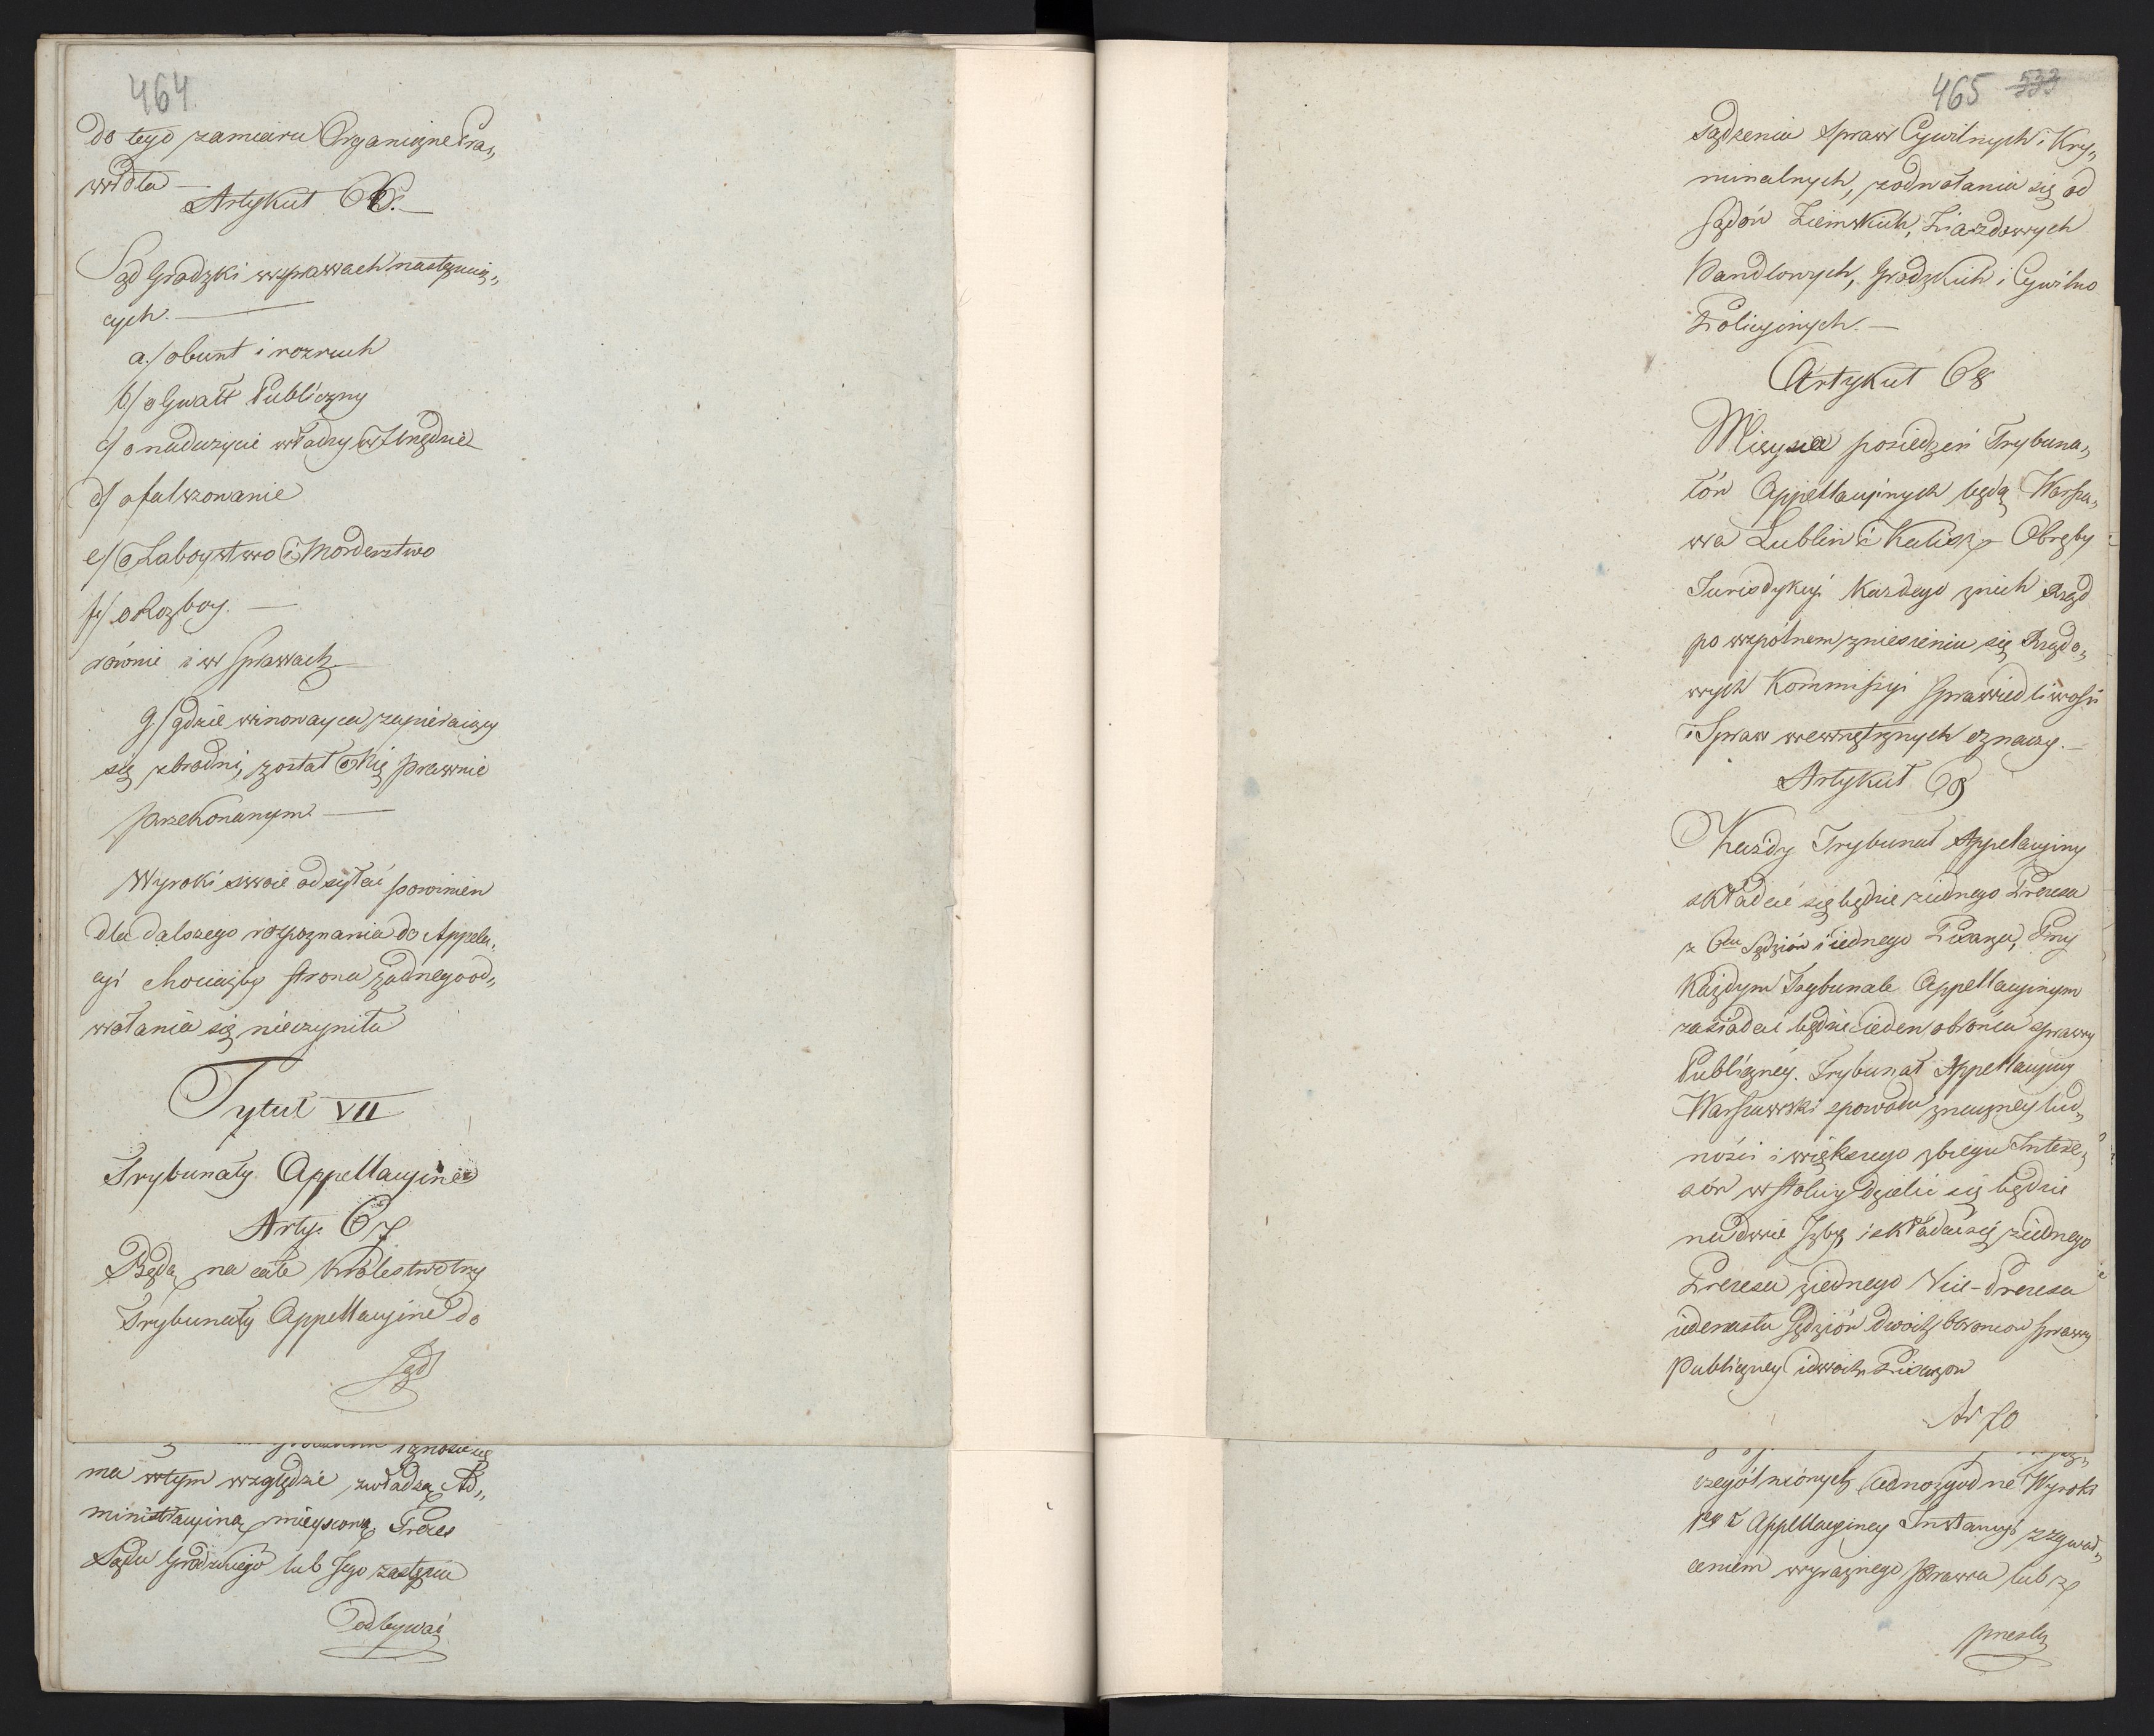 464
do tego zamiaru Organiczne Pra„
widła —
Artykuł 66. —
Sąd Grodzki w sprawach następuią„
cych. —
a/ o bunt i rozruch
b/ o Gwałt Publiczny
c/ o nadużycie władzy w Urzędzie
d/ o fałszowanie
e/ o Zaboystwo i Morderstwo
f/ o Rozboy. —
równie i w Sprawach —
g/ gdzie winowayca zapieraiący
się zbrodni, został o Nię prawnie
przekonanym —
Wyroki swoie odsyłać powinien
dla dalszego rozpoznania do Appela„
cyi chociażby strona żadnego od„
wołania się nieczyniła
Tytuł VII
Trybunały Appellacyine
Arty. 67
Będą na całe Królestwo trzy
Trybunały Appellacyine do
Sąd
ma w tym względzie z władzą Ad„
ministracyiną mieyscową Prezes
Sądu Grodzkiego lub Jego zastępca
odbywać
465 533
Sądzenia Spraw Cywilnych i Kry„
minalnych, z odwołania się od
Sądów Ziemskich, Ziazdowych
Handlowych, Grodzkich i Cywilno
Policyinych. —
Artykuł 68
Mieysca posiedzeń Trybuna„
łów Appellacyinych będą Warsza„
wa Lublin i Kalisz — Obręby
Jurisdykcyi każdego z nich Rząd
po wspólnem zniesieniu się Rządo„
wych Kommissyi Sprawiedliwości
i Spraw wewnętrznych oznaczy. —
Artykuł 69
Każdy Trybunał Appellacyiny
składać się będzie z iednego Prezesa
z 6ciu Sędziów i iednego Pisarza, Przy
każdym Trybunale Appellacyinym
zasiadać będzie ieden obrońca sprawy
Publiczney. Trybunał Appellacyiny
Warszawski z powodu znaczney lud„
ności i większego zbiegu Interes„
sów w stolicy dzielić się będzie
na dwie Izby i składać się z iednego
Prezesa z iednego Vice-Prezesa
iedenastu Sędziów dwóch obrońców Sprawy
Publiczney i dwóch Pisarzow
Ar 70
czególnionych iednozgodne Wyroki
1ey i Appellacyiney Instancyi z zgwał„
ceniem wyraźnego prawa lub z
przestę